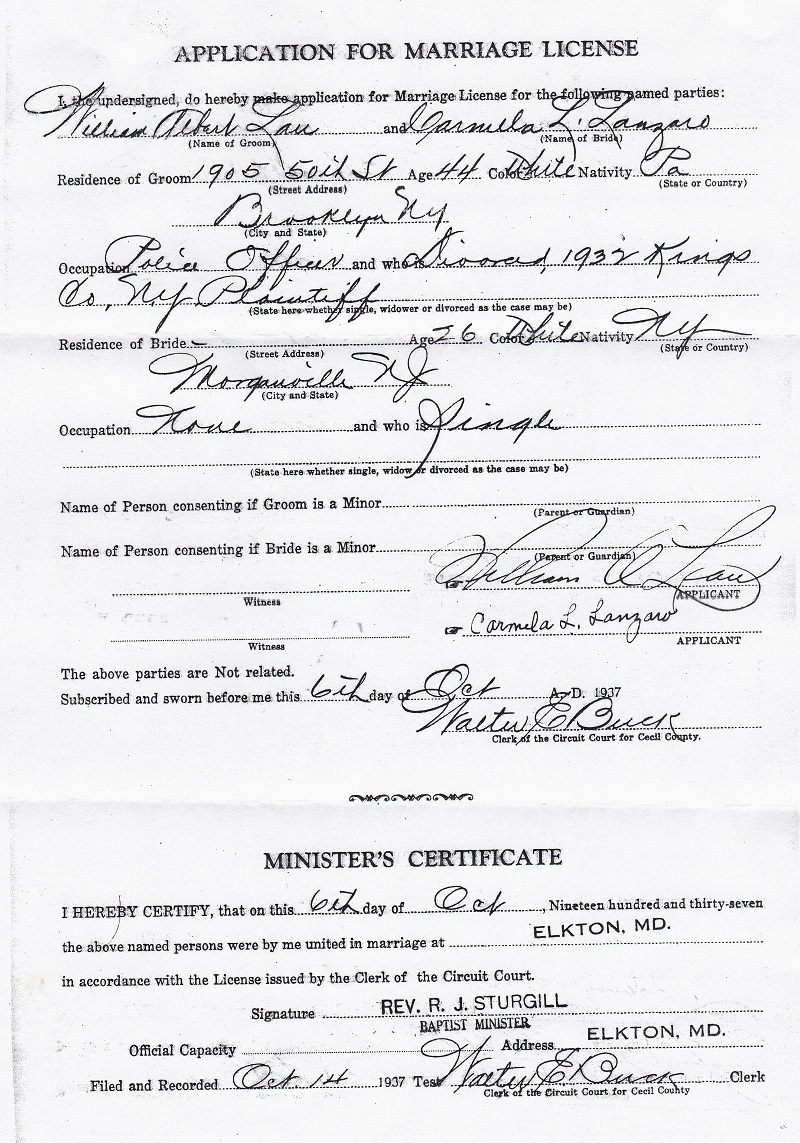 APPLICATION FOR MARRIAGE LICENSE
I, the undersigned, do hereby make application for Marriage License for the following named parties:
William Albert Lau and Carmela L. Lanzaro
(Name of Groom) (Name of Bride)
Residence of Groom 1905 50th St Age 44 Color White Nativity Pa
(Street Address) (State or Country)
Brooklyn NY
(City and State)
Occupation Police Officer and who is Divorced, 1932 Kings
Co, NY Plaintiff
(State here whether single, widower or divorced as the case may be)
Residence of Bride — Age 26 Color White Nativity NY
(Street Address) (State or Country)
Morganville NJ
(City and State)
Occupation None and who is Single
(State here whether single, widow or divorced as the case may be)
Name of Person consenting if Groom is a Minor
(Parent or Guardian)
Name of Person consenting if Bride is a Minor
(Parent or Guardian)
William A Lau
Witness APPLICANT
Carmela L. Lanzaro
Witness APPLICANT
The above parties are Not related.
Subscribed and sworn before me this 6th day of Oct A. D. 1937
Walter E Buck
Clerk of the Circuit Court for Cecil County.
MINISTER'S CERTIFICATE
I HEREBY CERTIFY, that on this 6th day of Oct, Nineteen hundred and thirty-seven
the above named persons were by me united in marriage at ELKTON, MD.
in accordance with the License issued by the Clerk of the Circuit Court.
Signature REV. R. J. STURGILL
BAPTIST MINISTER
Official Capacity Address ELKTON, MD.
Filed and Recorded Oct. 14 1937 Test Walter E Buck Clerk
Clerk of the Circuit Court for Cecil County